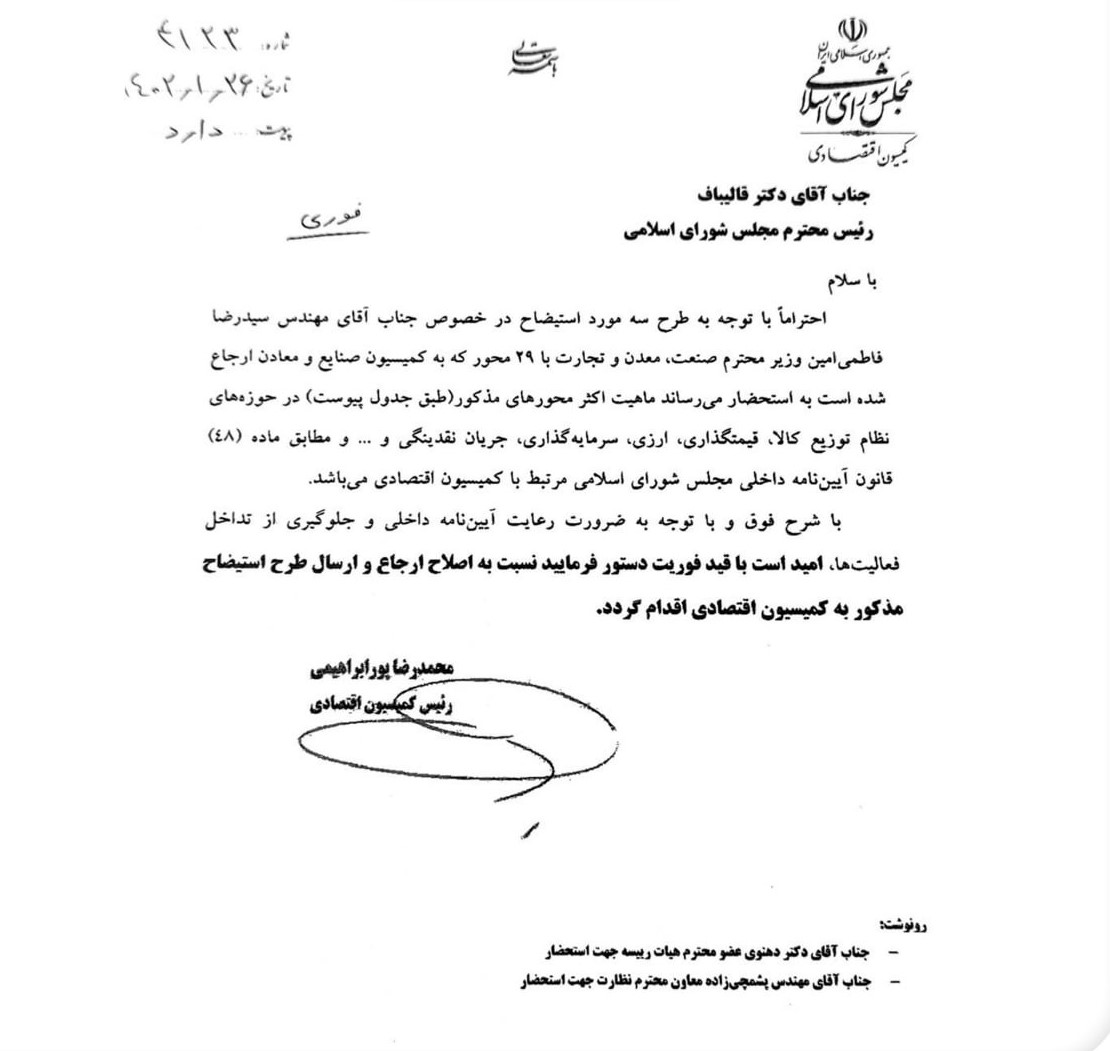 جمهوری اسلامی ایران
مجلس شورای اسلامی
کمیسیون اقتصادی
باسمه تعالی
شماره: ۴۱۲۳
تاریخ: ۱۴۰۲/۱/۲۶
پیوست: ... دارد
فوری
جناب آقای دکتر قالیباف
رئیس محترم مجلس شورای اسلامی
با سلام
احتراماً با توجه به طرح سه مورد استیضاح در خصوص جناب آقای مهندس سیدرضا
فاطمی‌امین وزیر محترم صنعت، معدن و تجارت با ۲۹ محور که به کمیسیون صنایع و معادن ارجاع
شده است به استحضار می‌رساند ماهیت اکثر محورهای مذکور(طبق جدول پیوست) در حوزه‌های
نظام توزیع کالا، قیمتگذاری، ارزی، سرمایه‌گذاری، جریان نقدینگی و ... و مطابق ماده (٤٨)
قانون آیین‌نامه داخلی مجلس شورای اسلامی مرتبط با کمیسیون اقتصادی می‌باشد.
با شرح فوق و با توجه به ضرورت رعایت آیین‌نامه داخلی و جلوگیری از تداخل
فعالیت‌ها، امید است با قید فوریت دستور فرمایید نسبت به اصلاح ارجاع و ارسال طرح استیضاح
مذکور به کمیسیون اقتصادی اقدام گردد.
محمدرضا پورابراهیمی
رئیس کمیسیون اقتصادی
رونوشت:
– جناب آقای دکتر دهنوی عضو محترم هیات رییسه جهت استحضار
– جناب آقای مهندس پشمچی‌زاده معاون محترم نظارت جهت استحضار